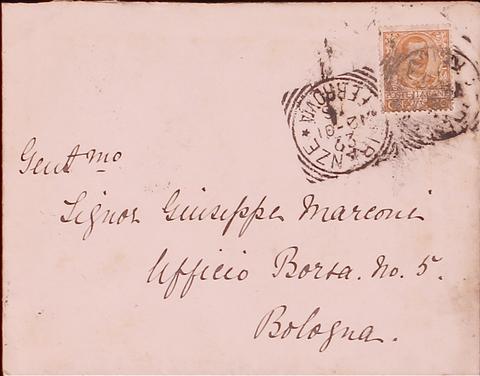 FIRENZE
★ FERROVIA
Gent.mo
Signor Giuseppe Marconi
Ufficio Borsa. No. 5.
Bologna.